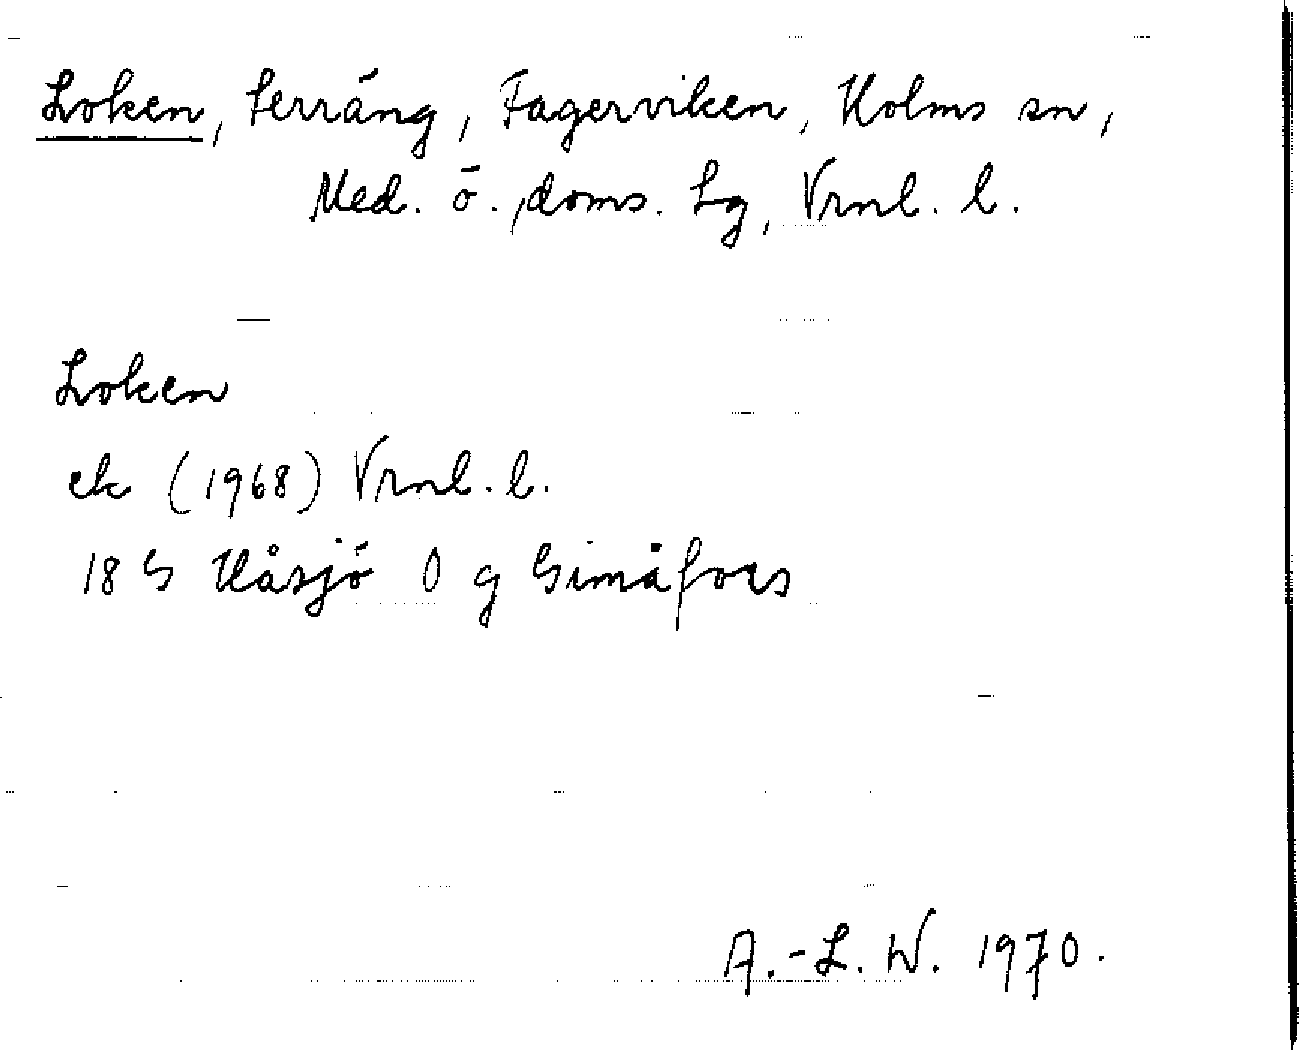 Loken, terräng, Fagerviken, Holms sn,
Med. ö. doms. Lg, Vrnl. l.
Loken
ek (1968) Vrnl. l.
18 G Håsjö O g Gimåfors
A.-L. W. 1970.